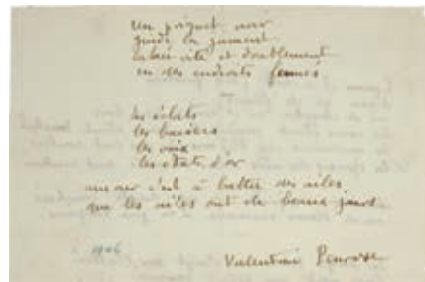 un poignet noir
guide la jument
la vité et doublement
en des endroits fermés
les éclats
les baisers
les voix
les états d'or
c'est à battre des ailes
que les ailes ont de beaux jours
1926
Valentine Penrose